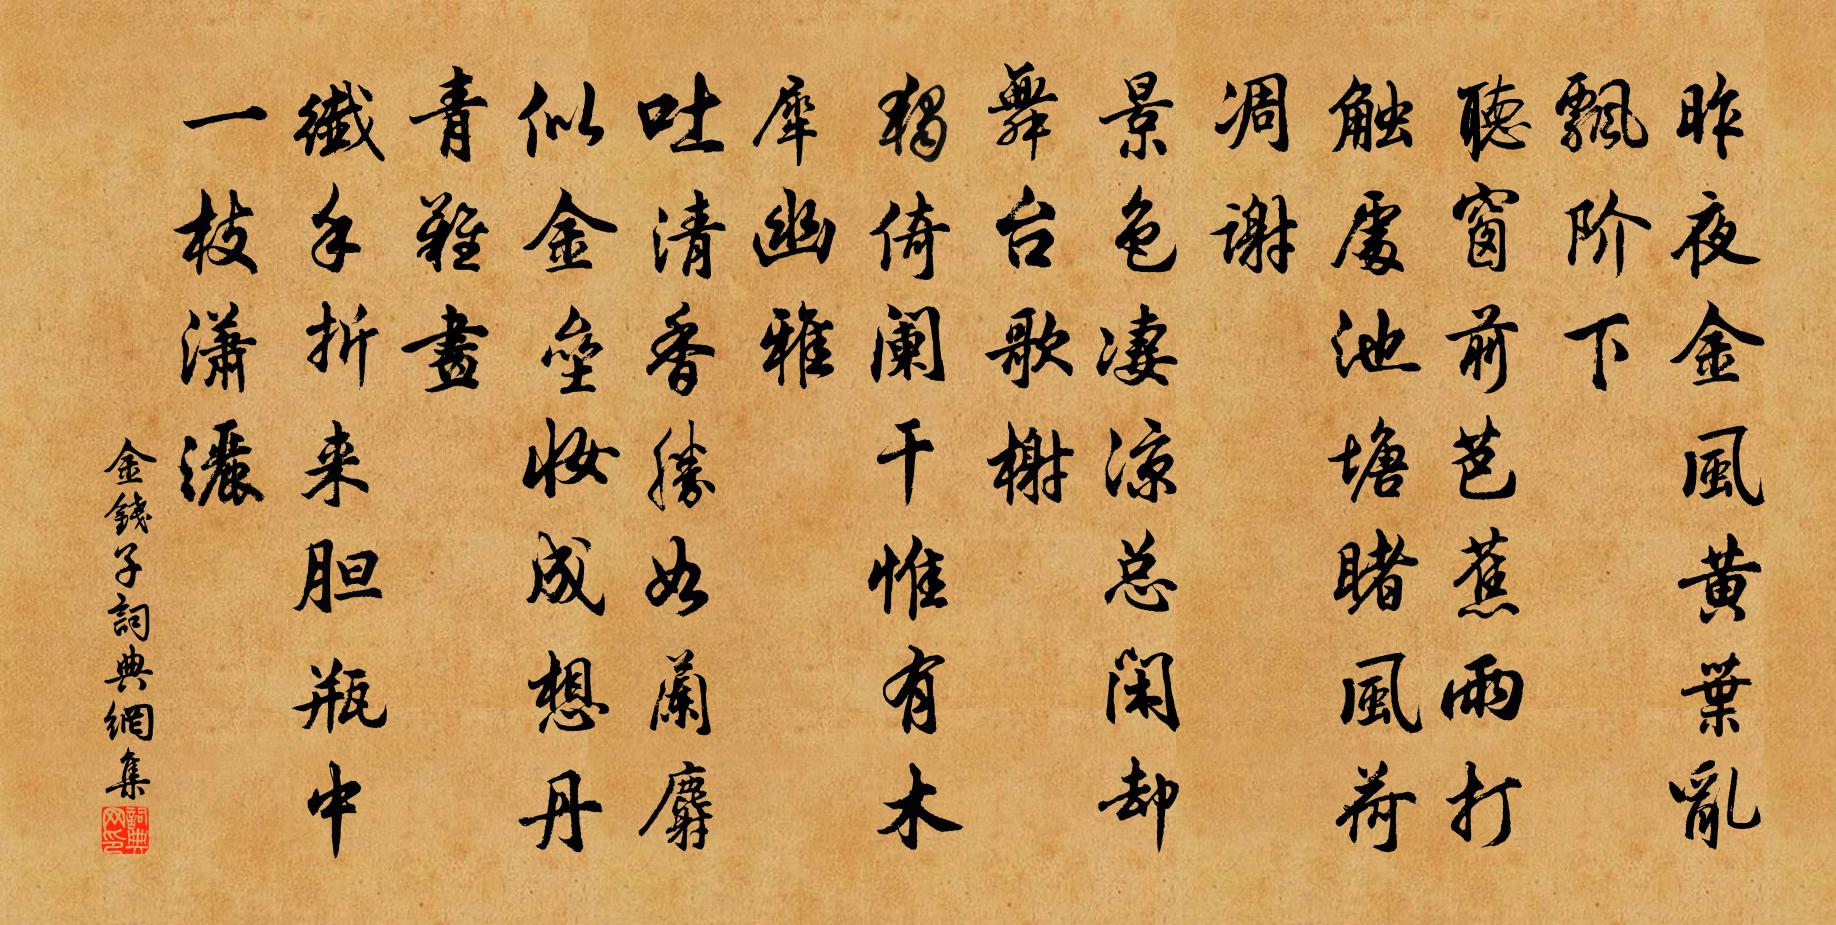 昨夜金風黄葉亂
飄阶下
聽窗前芭蕉雨打
触處池塘睹風荷
凋谢
景色凄凉总闲却
舞台歌榭
獨倚阑干惟有木
犀幽雅
吐清香勝如蘭麝
似金壘妝成想丹
青難畫
纖手折来胆瓶中
一枝潇灑
金錢子詞典網集
詞典網印